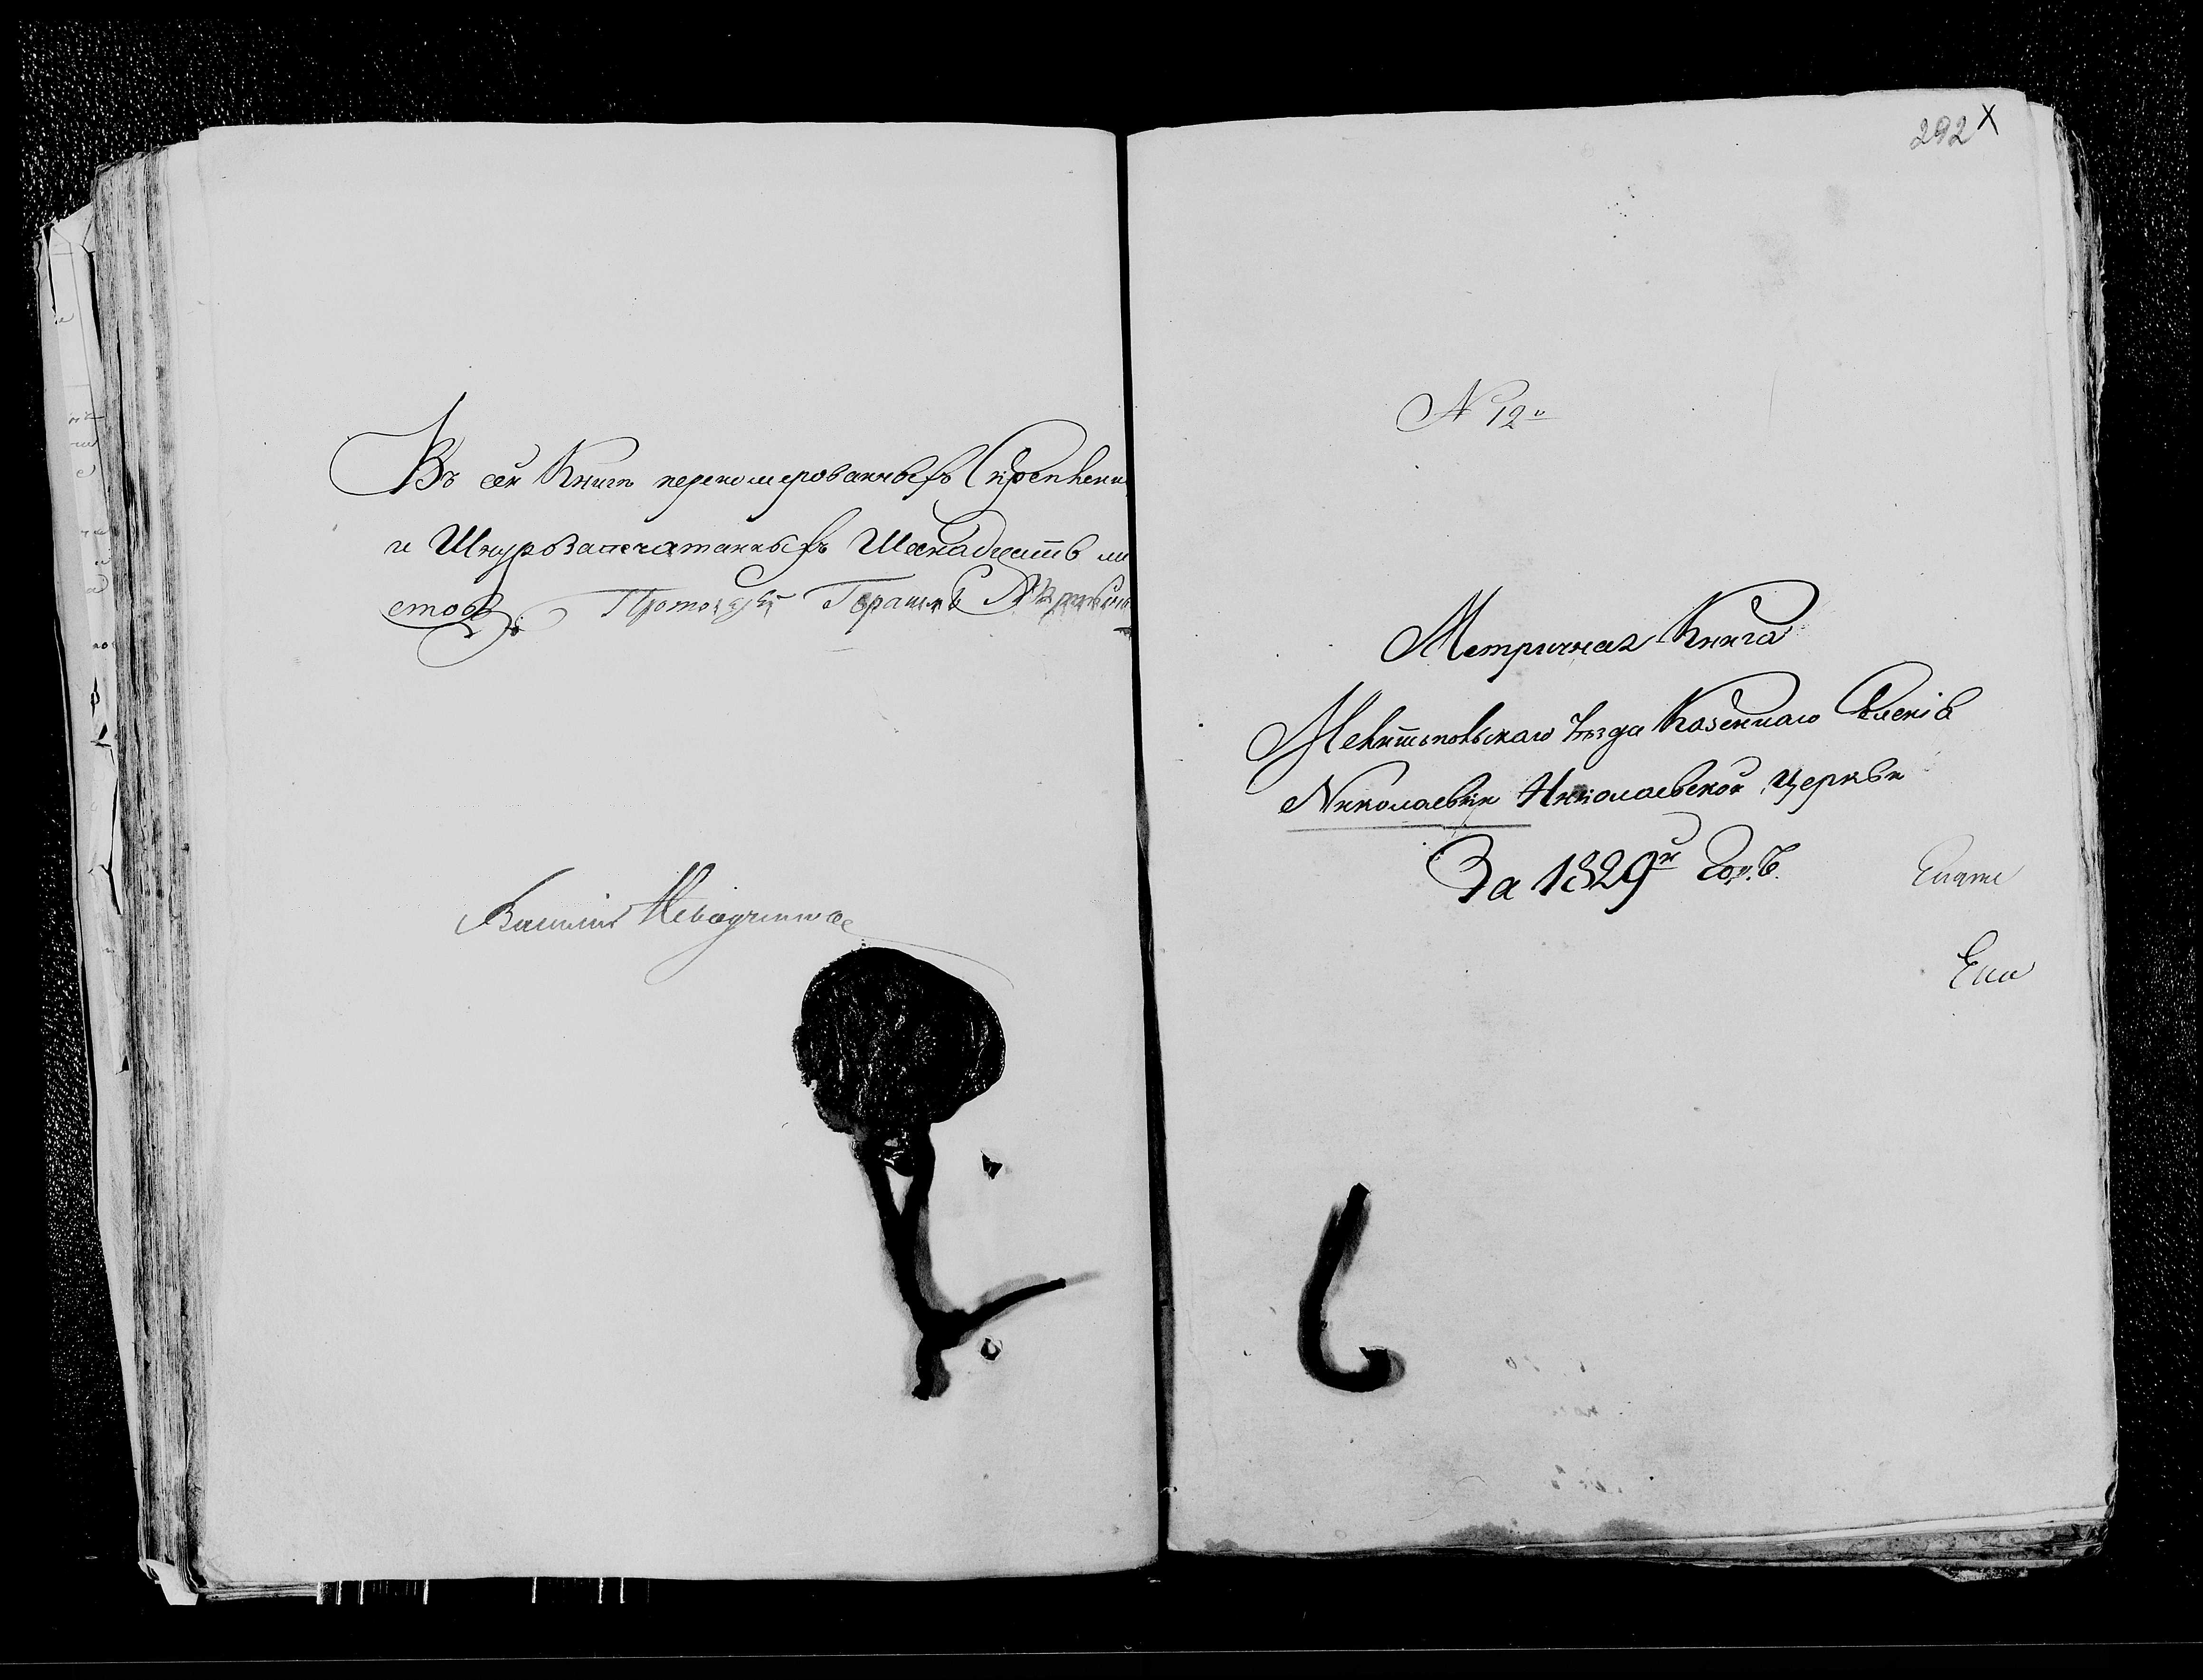 Въ сей Книгѣ перекомерованныхъ Скрепленн
и Шнурозапечатанныхъ Шеснадцать ли
стовъ Протоіерей
Василій
292 X
N 12й
Метричная Книга
Мелитопольскаго Уѣзда Казеннаго Селенія
Николаевки Николаевской Церкви
За 1829й Годъ.